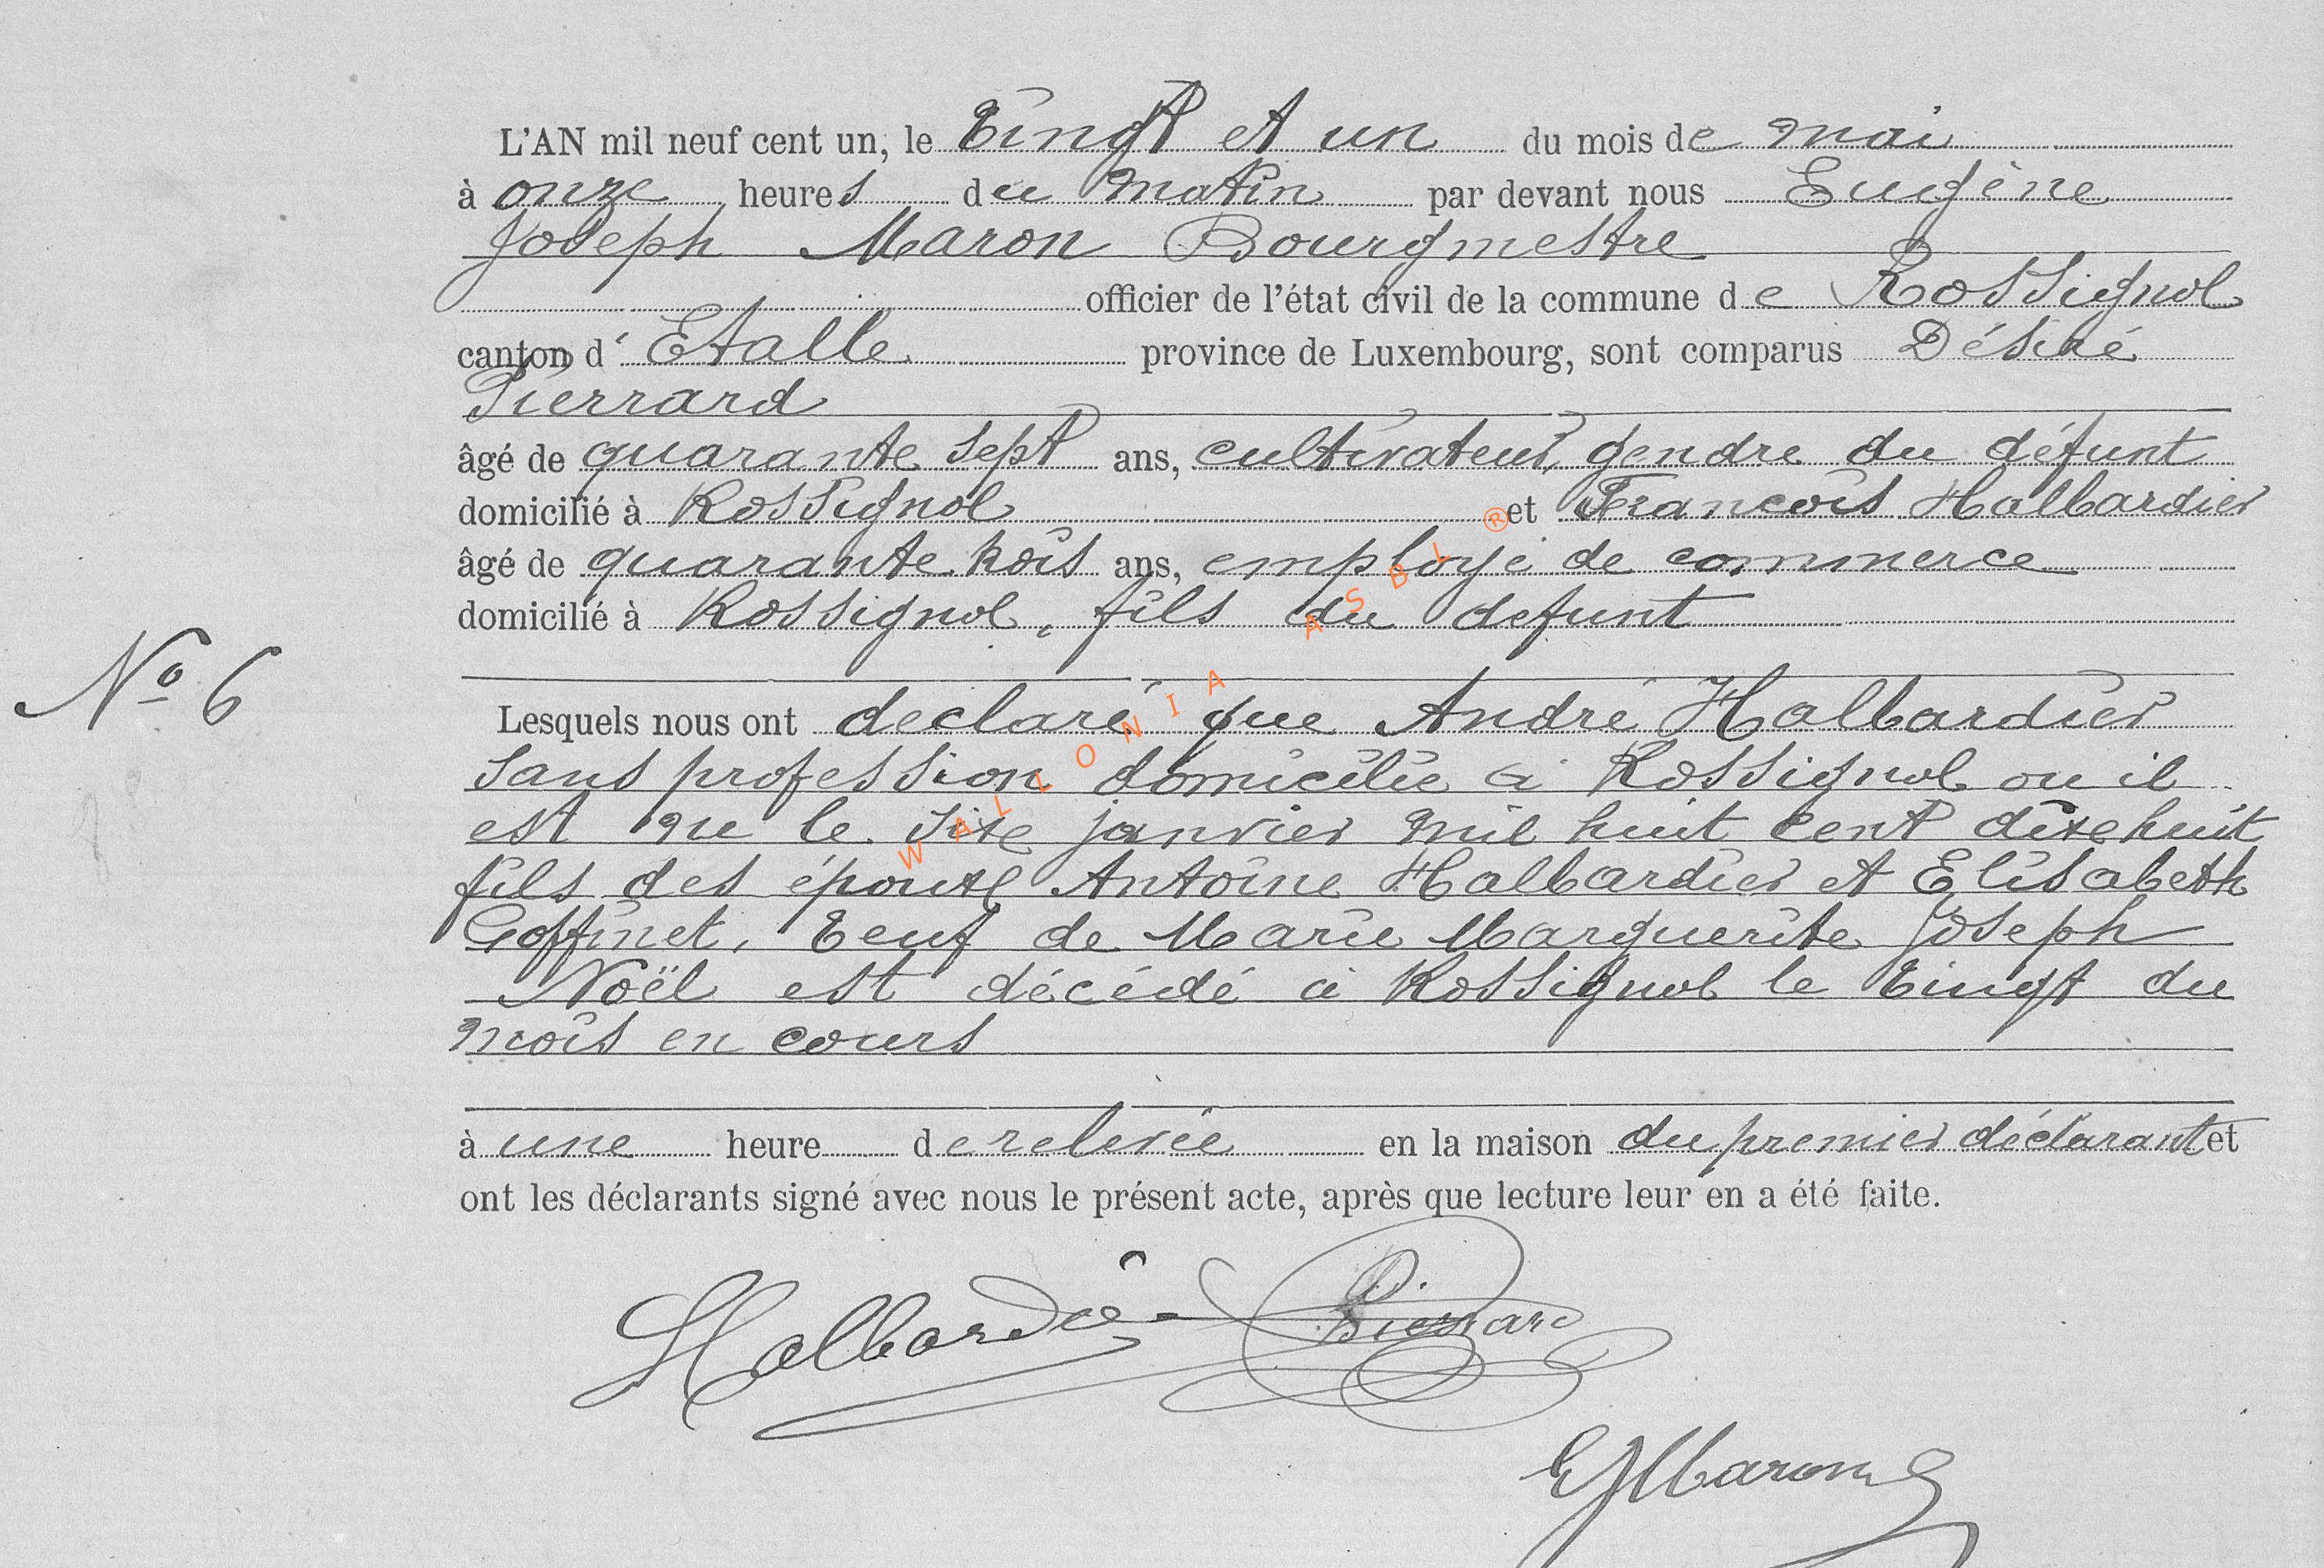 L'AN mil neuf cent un, le Vingt et un du mois de mai
à onze heures du matin par devant nous Eugène
Joseph Maron Bourgmestre
officier de l'état civil de la commune de Rossignol
canton d' Etalle province de Luxembourg, sont comparus Désiré
Pierrard
âgé de quarante sept ans, cultivateur, gendre du défunt
domicilié à Rossignol et François Halbardier
âgé de quarante trois ans, employé de commerce
domicilié à Rossignol, fils du defunt
N° 6
Lesquels nous ont declaré que André Halbardier
sans profession domicilié à Rossignol ou il
est né le six janvier mil huit cent dix huit
fils des époux Antoine Halbardier et Elisabeth
Goffinet, veuf de Marie Marguerite Joseph
Noël est décédé à Rossignol le vingt du
mois en cours
à une heure de relevée en la maison du premier déclarant et
ont les déclarants signé avec nous le présent acte, après que lecture leur en a été faite.
Halbardier Pierrard
EJMaron
WALLONIA ASBL ®